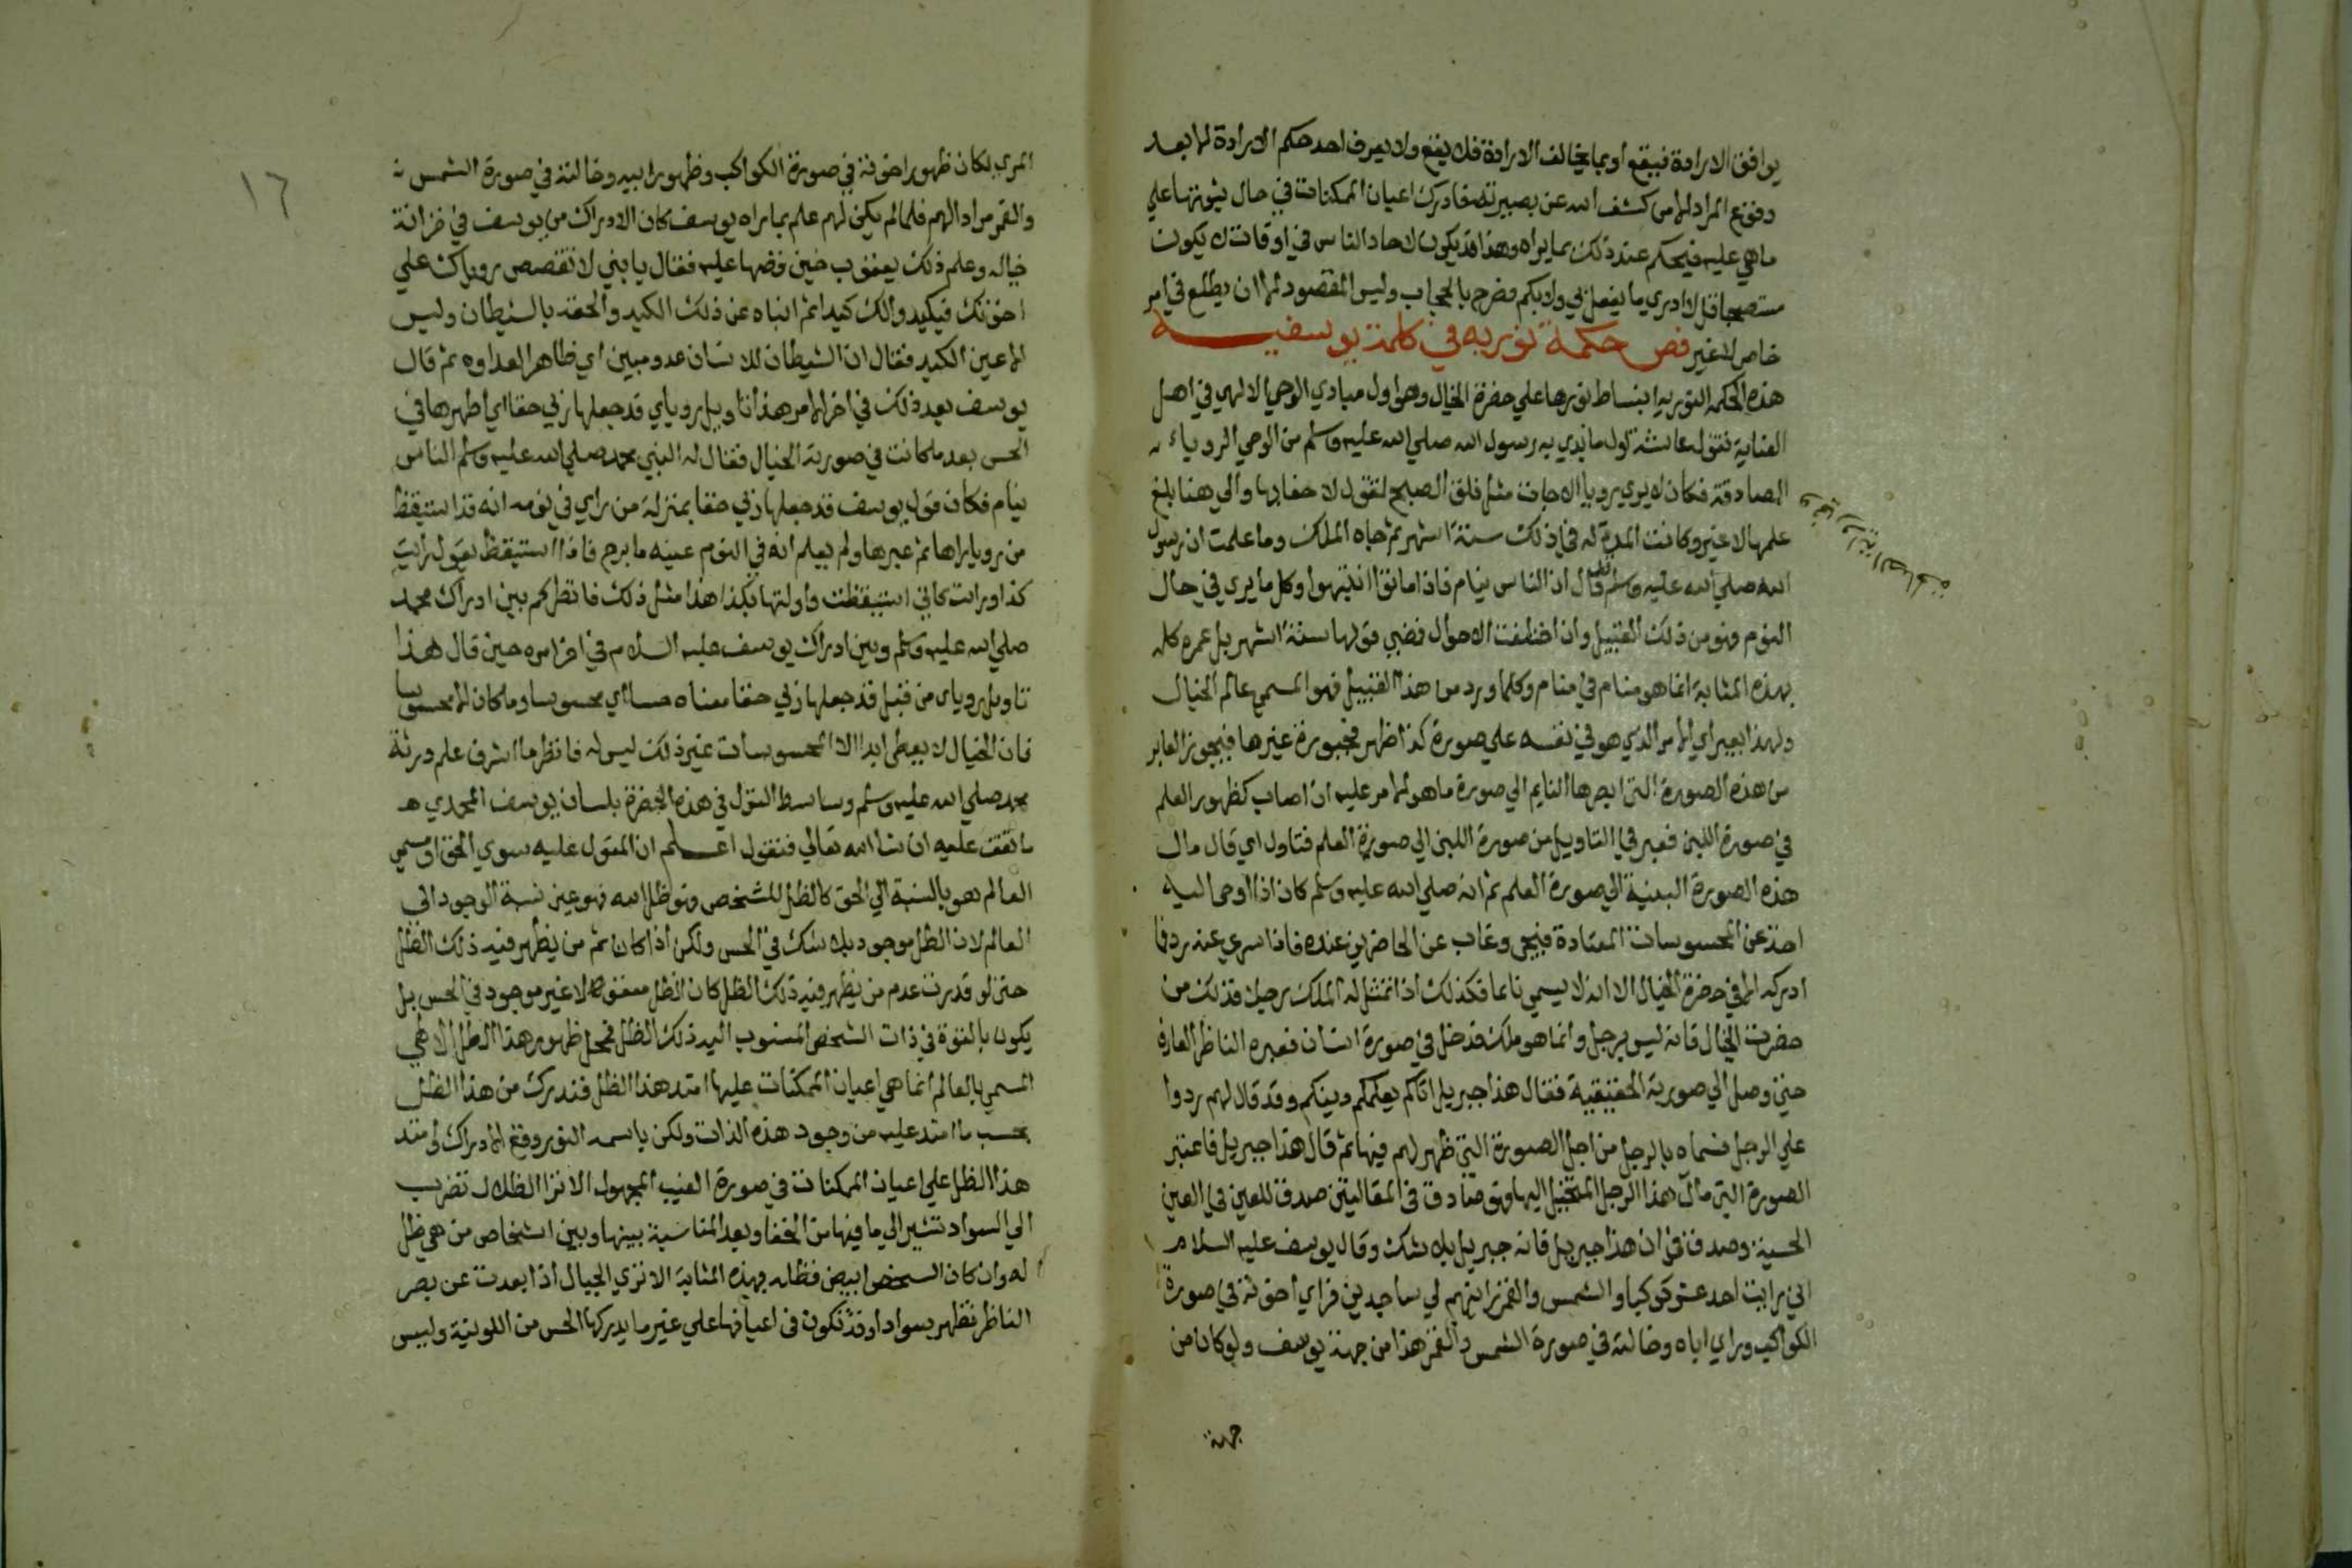 يوافق الارادة فيقع او بما يخالف الارادة فلا يقع ولا يعرف احد حكم الارادة الا بعد
وقوع المراد الا من كشف الله عن بصيرته فادرك اعيان الممكنات في حال ثبوتها علي
ماهي عليه فيحكم عند ذلك بما يراه وهذا قد يكون لاحاد الناس في اوقات لا يكون
مستصحبا قل لا ادري ما يفعل بي ولا بكم فصرح بالحجاب وليس المقصود الا ان يطلع في امر
خاص لا غير فص حكمة نوريه في كلمة يوسفيه
هذه الحكمه النوريه انبساط نورها علي حضرة الخيال وهو اول مبادي الوحي الالهي في اهل
العناية تقول عائشة اول ما بدي به رسول الله صلي الله عليه وسلم من الوحي الروياء
الصادقة فكان لا يري رويا الا جات مثل فلق الصبح تقول لا خفا بها والي هنا بلغ
علمها لا غير وكانت المدة له في ذلك ستة اشهر ثم جاه الملك وما علمت ان رسول
الله صلي الله عليه وسلم قال ان الناس نيام فاذا ماتوا انتبهوا وكل ما يري في حال
النوم فهو من ذلك القبيل وان اختلفت الاحوال فضي قولها ستة اشهر بل عمره كله
بهذه المثابة انما هو منام في منام وكلما ورد من هذا القبيل فهو المسمي عالم الخيال
ولهذا يعبر اي الامر الذي هو في نفسه علي صورة كذا ظهر في صورة غيرها فيجوز العابر
من هذه الصورة التي ابصرها النايم الي صورة ما هو الامر عليه ان اصاب كظهور العلم
في صورة اللبن فعبر في التاويل من صورة اللبن الي صورة العلم فتاول اي قال مال
هذه الصورة اللبنية الي صورة العلم ثم انه صلي الله عليه وسلم كان اذا اوحي اليه
اخذ عن المحسوسات المعتادة فسجي وغاب عن الحاضرين عنده فاذا سري عنه رد فما
ادركه الا في حضرة الخيال الا انه لا يسمي نائما فكذلك اذا تمثل له الملك رجلا فذلك من
حضرت الخيال فانه ليس برجل وانما هو ملك فدخل في صورة انسان فعبره الناظر العارف
حتي وصل الي صورته الحقيقية فقال هذا جبريل اتاكم يعلمكم دينكم وقد قال لهم ردوا
علي الرجل فسماه بالرجل من اجل الصورة التي ظهر لهم فيها ثم قال هذا جبريل فاعتبر
الصورة التي مال هذا الرجل المتخيل اليها وهو صادق في المقالتين صدق للعين في العين
الحسية وصدق في ان هذا جبريل فانه جبريل بلا شك وقال يوسف عليه السلام
اني رايت احد عشر كوكبا والشمس والقمر رايتهم لي ساجدين فراي اخوته في صورة
الكواكب وراي اباه وخالته في صورة الشمس والقمر هذا من جهة يوسف ولو كان من
جهة
١٦
المري لكان ظهور اخوته في صورة الكواكب وظهور ابيه وخالته في صورة الشمس
والقمر مرادا لهم فلما لم يكن لهم علم بما راه يوسف كان الادراك من يوسف في خزانة
خياله وعلم ذلك يعقوب حين قصها عليه فقال يا بني لا تقصص روياك علي
اخوتك فيكيدوا لك كيدا ثم ابناه عن ذلك الكيد والحقه بالشيطان وليس
الا عين الكيد فقال ان الشيطان للانسان عدو مبين اي ظاهر العداوه ثم قال
يوسف بعد ذلك في اخر الامر هذا تاويل روياي قد جعلها ربي حقا اي اظهرها في
الحس بعد ما كانت في صورة الخيال فقال له النبي محمد صلي الله عليه وسلم الناس
نيام فكان قول يوسف قد جعلها ربي حقا بمنزلة من راي في نومه انه قد استيقظ
من رويا راها ثم عبرها ولم يعلم انه في النوم عينه ما برح فاذا استيقظ يقول رايت
كذا ورايت كاني استيقظت واولتها بكذا هذا مثل ذلك فانظر كم بين ادراك محمد
صلي الله عليه وسلم وبين ادراك يوسف عليه السلام في اخر امره حين قال هذا
تاويل روياي من قبل قد جعلها ربي حقا معناه حسا اي محسوسا وما كان الا محسوسا
فان الخيال لا يعطي ابدا الا المحسوسات غير ذلك ليس له فانظر ما اشرف علم ورثة
محمد صلي الله عليه وسلم وسابسط القول في هذه الحضرة بلسان يوسف المحمدي
ما تقف عليه ان شا الله تعالي فنقول اعلم ان المقول عليه سوي الحق او مسمي
العالم هو بالنسبة الي الحق كالظل للشخص وهو ظل الله فهو عين نسبة الوجود الي
العالم لان الظل موجود بلا شك في الحس ولكن اذا كان ثم من يظهر فيه ذلك الظل
حتي لو قدرت عدم من يظهر فيه ذلك الظل كان الظل معقولا لا غير موجود في الحس بل
يكون بالقوة في ذات الشخص المنسوب اليه ذلك الظل فمحل ظهور هذا الظل الالهي
المسمي بالعالم انما هي اعيان الممكنات عليها امتد هذا الظل فتدرك من هذا الظل
بحسب ما امتد عليه من وجود هذه الذات ولكن باسمه النور وقع الادراك وامتد
هذا الظل علي اعيان الممكنات في صورة الغيب المجهول الا تري الظلال تضرب
الي السواد تشير الي ما فيها من الخفا وبعد المناسبة بينها وبين اشخاص من هي ظل
له وان كان الشخص ابيض فظله بهذه المثابة الا تري الجبال اذا بعدت عن بصر
الناظر تظهر سوادا وقد تكون في اعيانها علي غير ما يدركها الحس من اللونية وليس